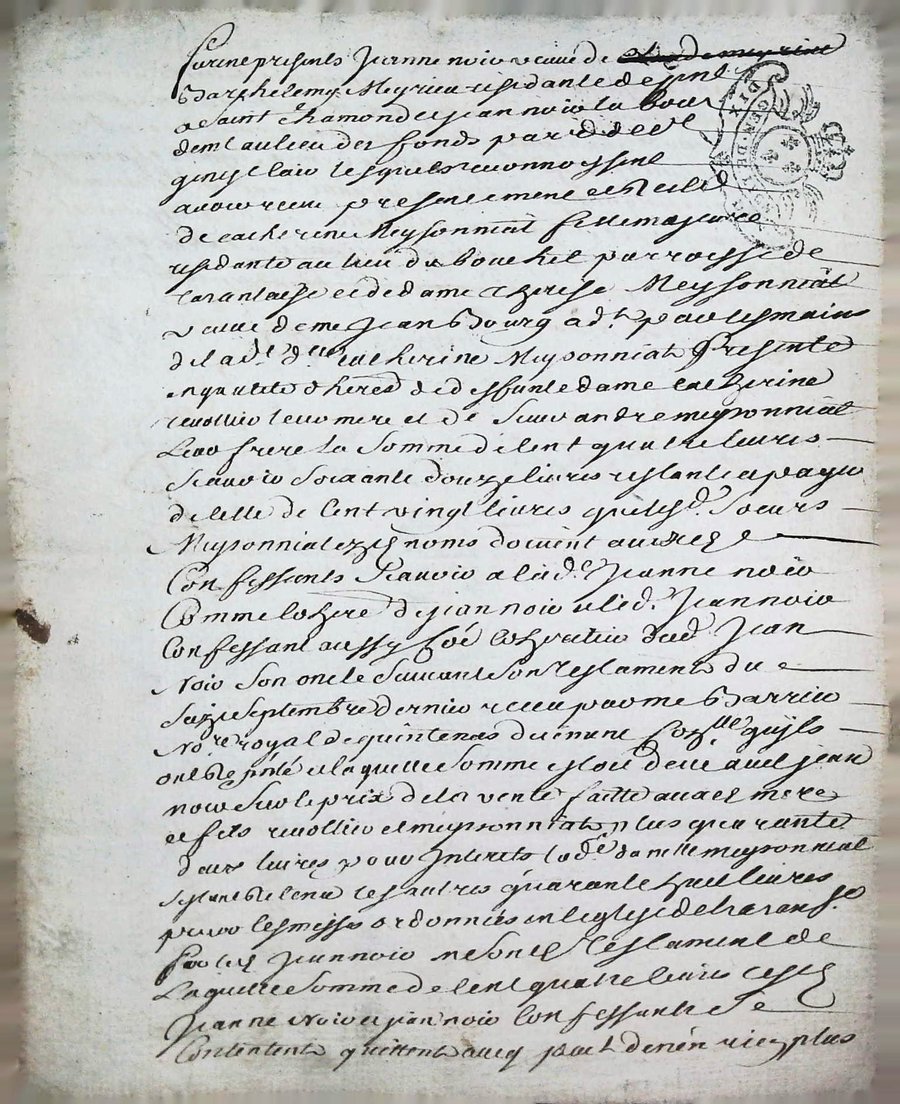 Furent presents Jeanne noir veuve de
Barthelemy Meyrieu residante de pnt
a Saint Chamond et jean noir labour
demt au lieu des fonds parr. de
lesquels reconnoissent
avoir receu presentement et
de catherine Meysonniat fille majeure
residante au lieu du bouchet parroisse de
tarantaise et de dame therese Meysonniat
veuve de me Jean Bourg adt par les mains
de lade dlle catherine Meysonniat presente
en qualité d'hered de deffunte dame catherine
revollier leur mere et de Sieur andre meysonniat
Leur frere la Somme de Cent quatre livres
Scavoir Soixante douze livres restante a payer
de celle de Cent vingt livres que lesd. Soeurs
Meysonniat ezd noms doivent auxd
Confessants Scavoir a lad.e Jeanne noir
Comme cohere de jean noir et led. Jean noir
Confessant aussy coheritier dud Jean
Noir Son oncle Suivant Son testament du
Seize Septembre dernier receu par me Barrieu
No.re royal de quintenas duement con.llé quils
ont represté et laquelle Somme estoit deue aud jean
noir Sur le prix de la vente faitte auxd mere
et fils revollier et meysonniat plus quarante
deux livres pour Interets lade damlle meysonniat
estant retenu les autres quarante huit livres
pour les messes ordonnées en leglise de tarants.e
par led Jean noir en Son testament de
Laquelle Somme de Cent quatre livres lesd
Jeanne Noir et jean noir Confessants Se
Contentent quittent avec pact de n'en rien plus
DIX
GEN DE